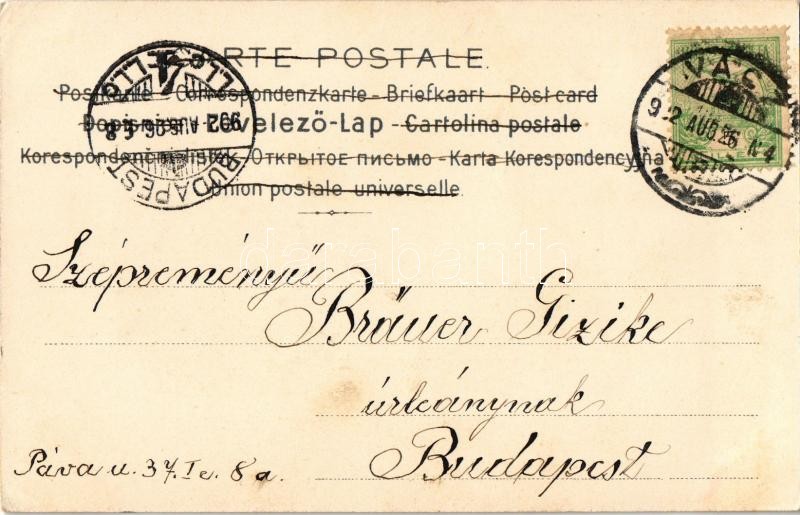 CARTE POSTALE.
Postkarte – Correspondenzkarte – Briefkaart – Post card
Levelező-Lap – Cartolina postale
– Открытое письмо – Karta Korespondencyjna
Union postale universelle
VÁC
902 AUG 26 N4
BUDAPEST
902 AUG 26
darabanth
Szépreményű
Bräuer Gizike
úrleánynak
Budapest
Páva u. 37. I e. 8 a.